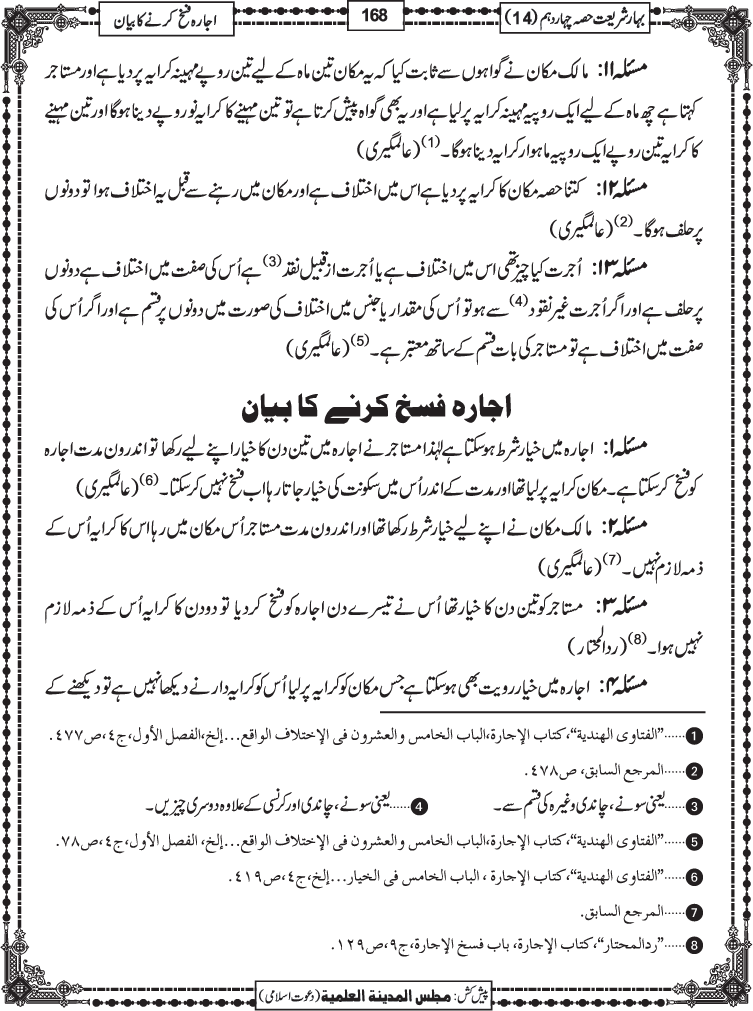 بہارِ شریعت حصہ چہاردہم (14)
168
اجارہ فسخ کرنے کا بیان
مسئلہ ۱۱: مالک مکان نے گواہوں سے ثابت کیا کہ یہ مکان تین ماہ کے لیے تین روپے مہینہ کرایہ پر دیا ہے اور مستاجر
کہتا ہے چھ ماہ کے لیے ایک روپیہ مہینہ کرایہ پر لیا ہے اور یہ بھی گواہ پیش کرتا ہے تو تین مہینے کا کرایہ نو روپے دینا ہوگا اور تین مہینے
کا کرایہ تین روپے ایک روپیہ ماہوار کرایہ دینا ہوگا۔(1) (عالمگیری)
مسئلہ ۱۲: کتنا حصہ مکان کا کرایہ پر دیا ہے اس میں اختلاف ہے اور مکان میں رہنے سے قبل یہ اختلاف ہوا تو دونوں
پر حلف ہوگا۔(2) (عالمگیری)
مسئلہ ۱۳: اُجرت کیا چیز تھی اس میں اختلاف ہے یا اُجرت از قبیل نقد(3) ہے اُس کی صفت میں اختلاف ہے دونوں
پر حلف ہے اور اگر اُجرت غیر نقود(4) سے ہو تو اُس کی مقدار یا جنس میں اختلاف کی صورت میں دونوں پر قسم ہے اور اگر اُس کی
صفت میں اختلاف ہے تو مستاجر کی بات قسم کے ساتھ معتبر ہے۔(5) (عالمگیری)
اجارہ فسخ کرنے کا بیان
مسئلہ ۱: اجارہ میں خیار شرط ہوسکتا ہے لہٰذا مستاجر نے اجارہ میں تین دن کا خیار اپنے لیے رکھا تو اندرون مدت اجارہ
کو فسخ کرسکتا ہے۔ مکان کرایہ پر لیا تھا اور مدت کے اندر اُس میں سکونت کی خیار جاتا رہا اب فسخ نہیں کرسکتا۔(6) (عالمگیری)
مسئلہ ۲: مالک مکان نے اپنے لیے خیار شرط رکھا تھا اور اندرون مدت مستاجر اُس مکان میں رہا اس کا کرایہ اُس کے
ذمہ لازم نہیں۔(7) (عالمگیری)
مسئلہ ۳: مستاجر کو تین دن کا خیار تھا اُس نے تیسرے دن اجارہ کو فسخ کردیا تو دو دن کا کرایہ اُس کے ذمہ لازم
نہیں ہوا۔(8) (ردالمحتار)
مسئلہ ۴: اجارہ میں خیار رویت بھی ہوسکتا ہے جس مکان کو کرایہ پر لیا اُس کو کرایہ دار نے دیکھا نہیں ہے تو دیکھنے کے
1 ......"الفتاوی الهندية"، کتاب الإجارة،الباب الخامس والعشرون فی الإختلاف الواقع...إلخ،الفصل الأول،ج٤،ص٤٧٧.
2 ......المرجع السابق، ص٤٧٨.
3 ......یعنی سونے، چاندی وغیرہ کی قسم سے۔ 4 ......یعنی سونے، چاندی اور کرنسی کے علاوہ دوسری چیزیں۔
5 ......"الفتاوی الهندية"، کتاب الإجارة،الباب الخامس والعشرون فی الإختلاف الواقع...إلخ، الفصل الأول،ج٤،ص٧٨.
6 ......"الفتاوی الهندية"، کتاب الإجارة ، الباب الخامس فی الخيار...إلخ،ج٤،ص٤١٩.
7 ......المرجع السابق.
8 ......"ردالمحتار"، کتاب الإجارة، باب فسخ الإجارة،ج٩،ص١٢٩.
پیش کش: مجلس المدينة العلمية (دعوت اسلامی)